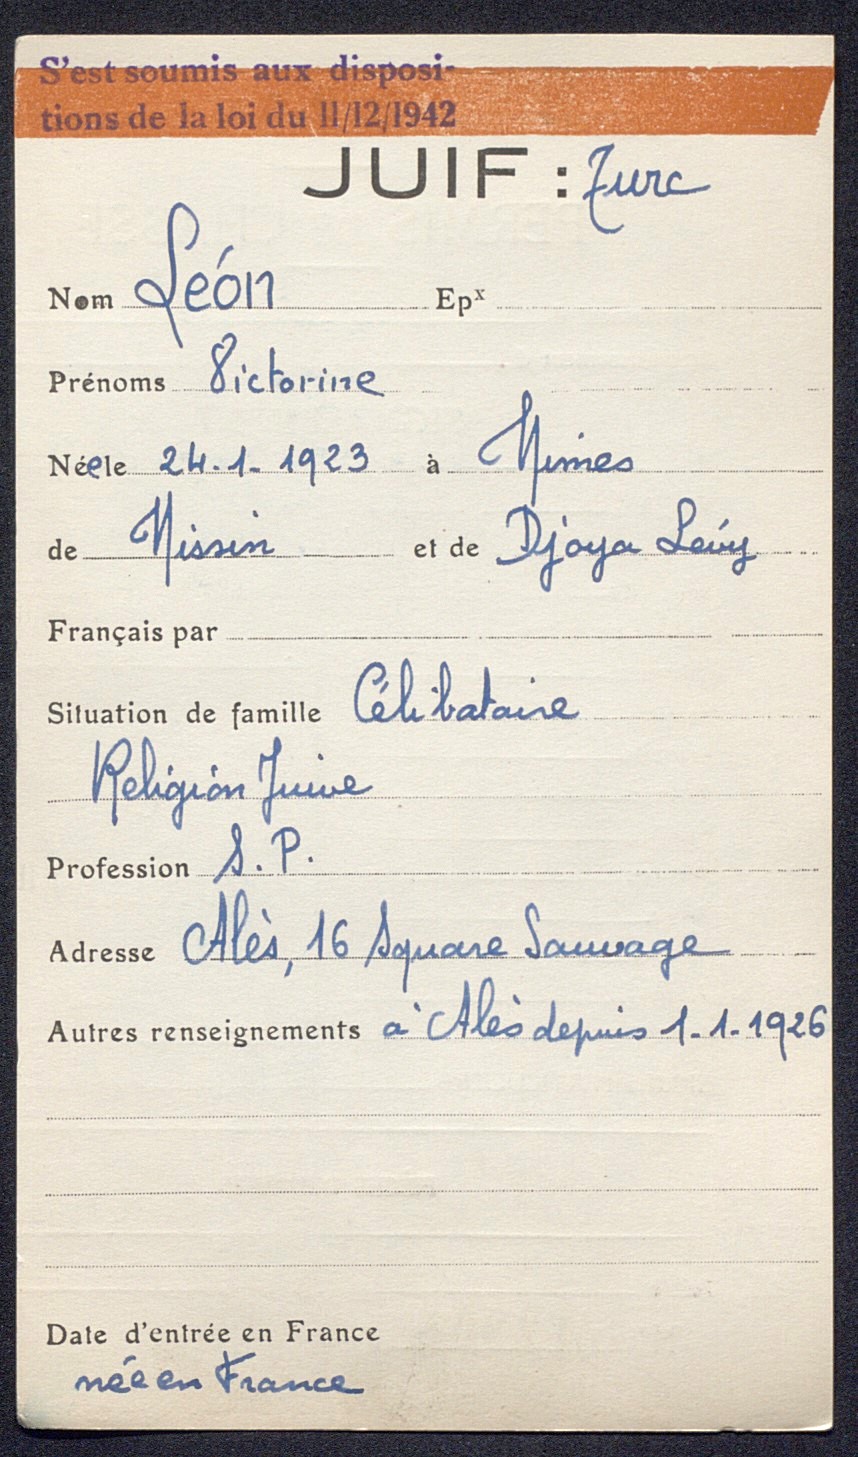 S'est soumis aux disposi-
tions de la loi du 11/12/1942
JUIF : Turc
Nom León Epx
Prénoms Victorine
Néele 24.1.1923 à Nimes
de Nissin et de Djoya Levy
Français par
Situation de famille Célibataire
Religion Juive
Profession S.P.
Adresse Alès, 16 Square Sauvage
Autres renseignements à Alès depuis 1.1.1926
Date d'entrée en France
née en France